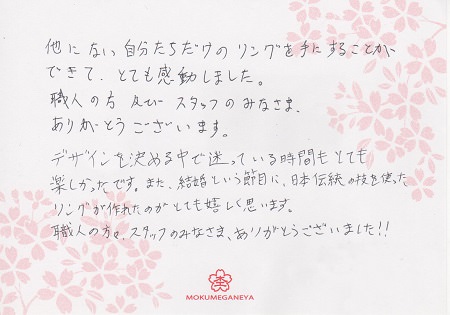 他にない自分たちだけのリングを手にすることが
できて、とても感動しました。
職人の方 及び スタッフのみなさま、
ありがとうございます。
デザインを決める中で迷っている時間もとても
楽しかったです。また、結婚という節目に、日本伝統の技を使った
リングが作れたのがとても嬉しく思います。
職人の方々、スタッフのみなさま、ありがとうございました!!
MOKUMEGANEYA